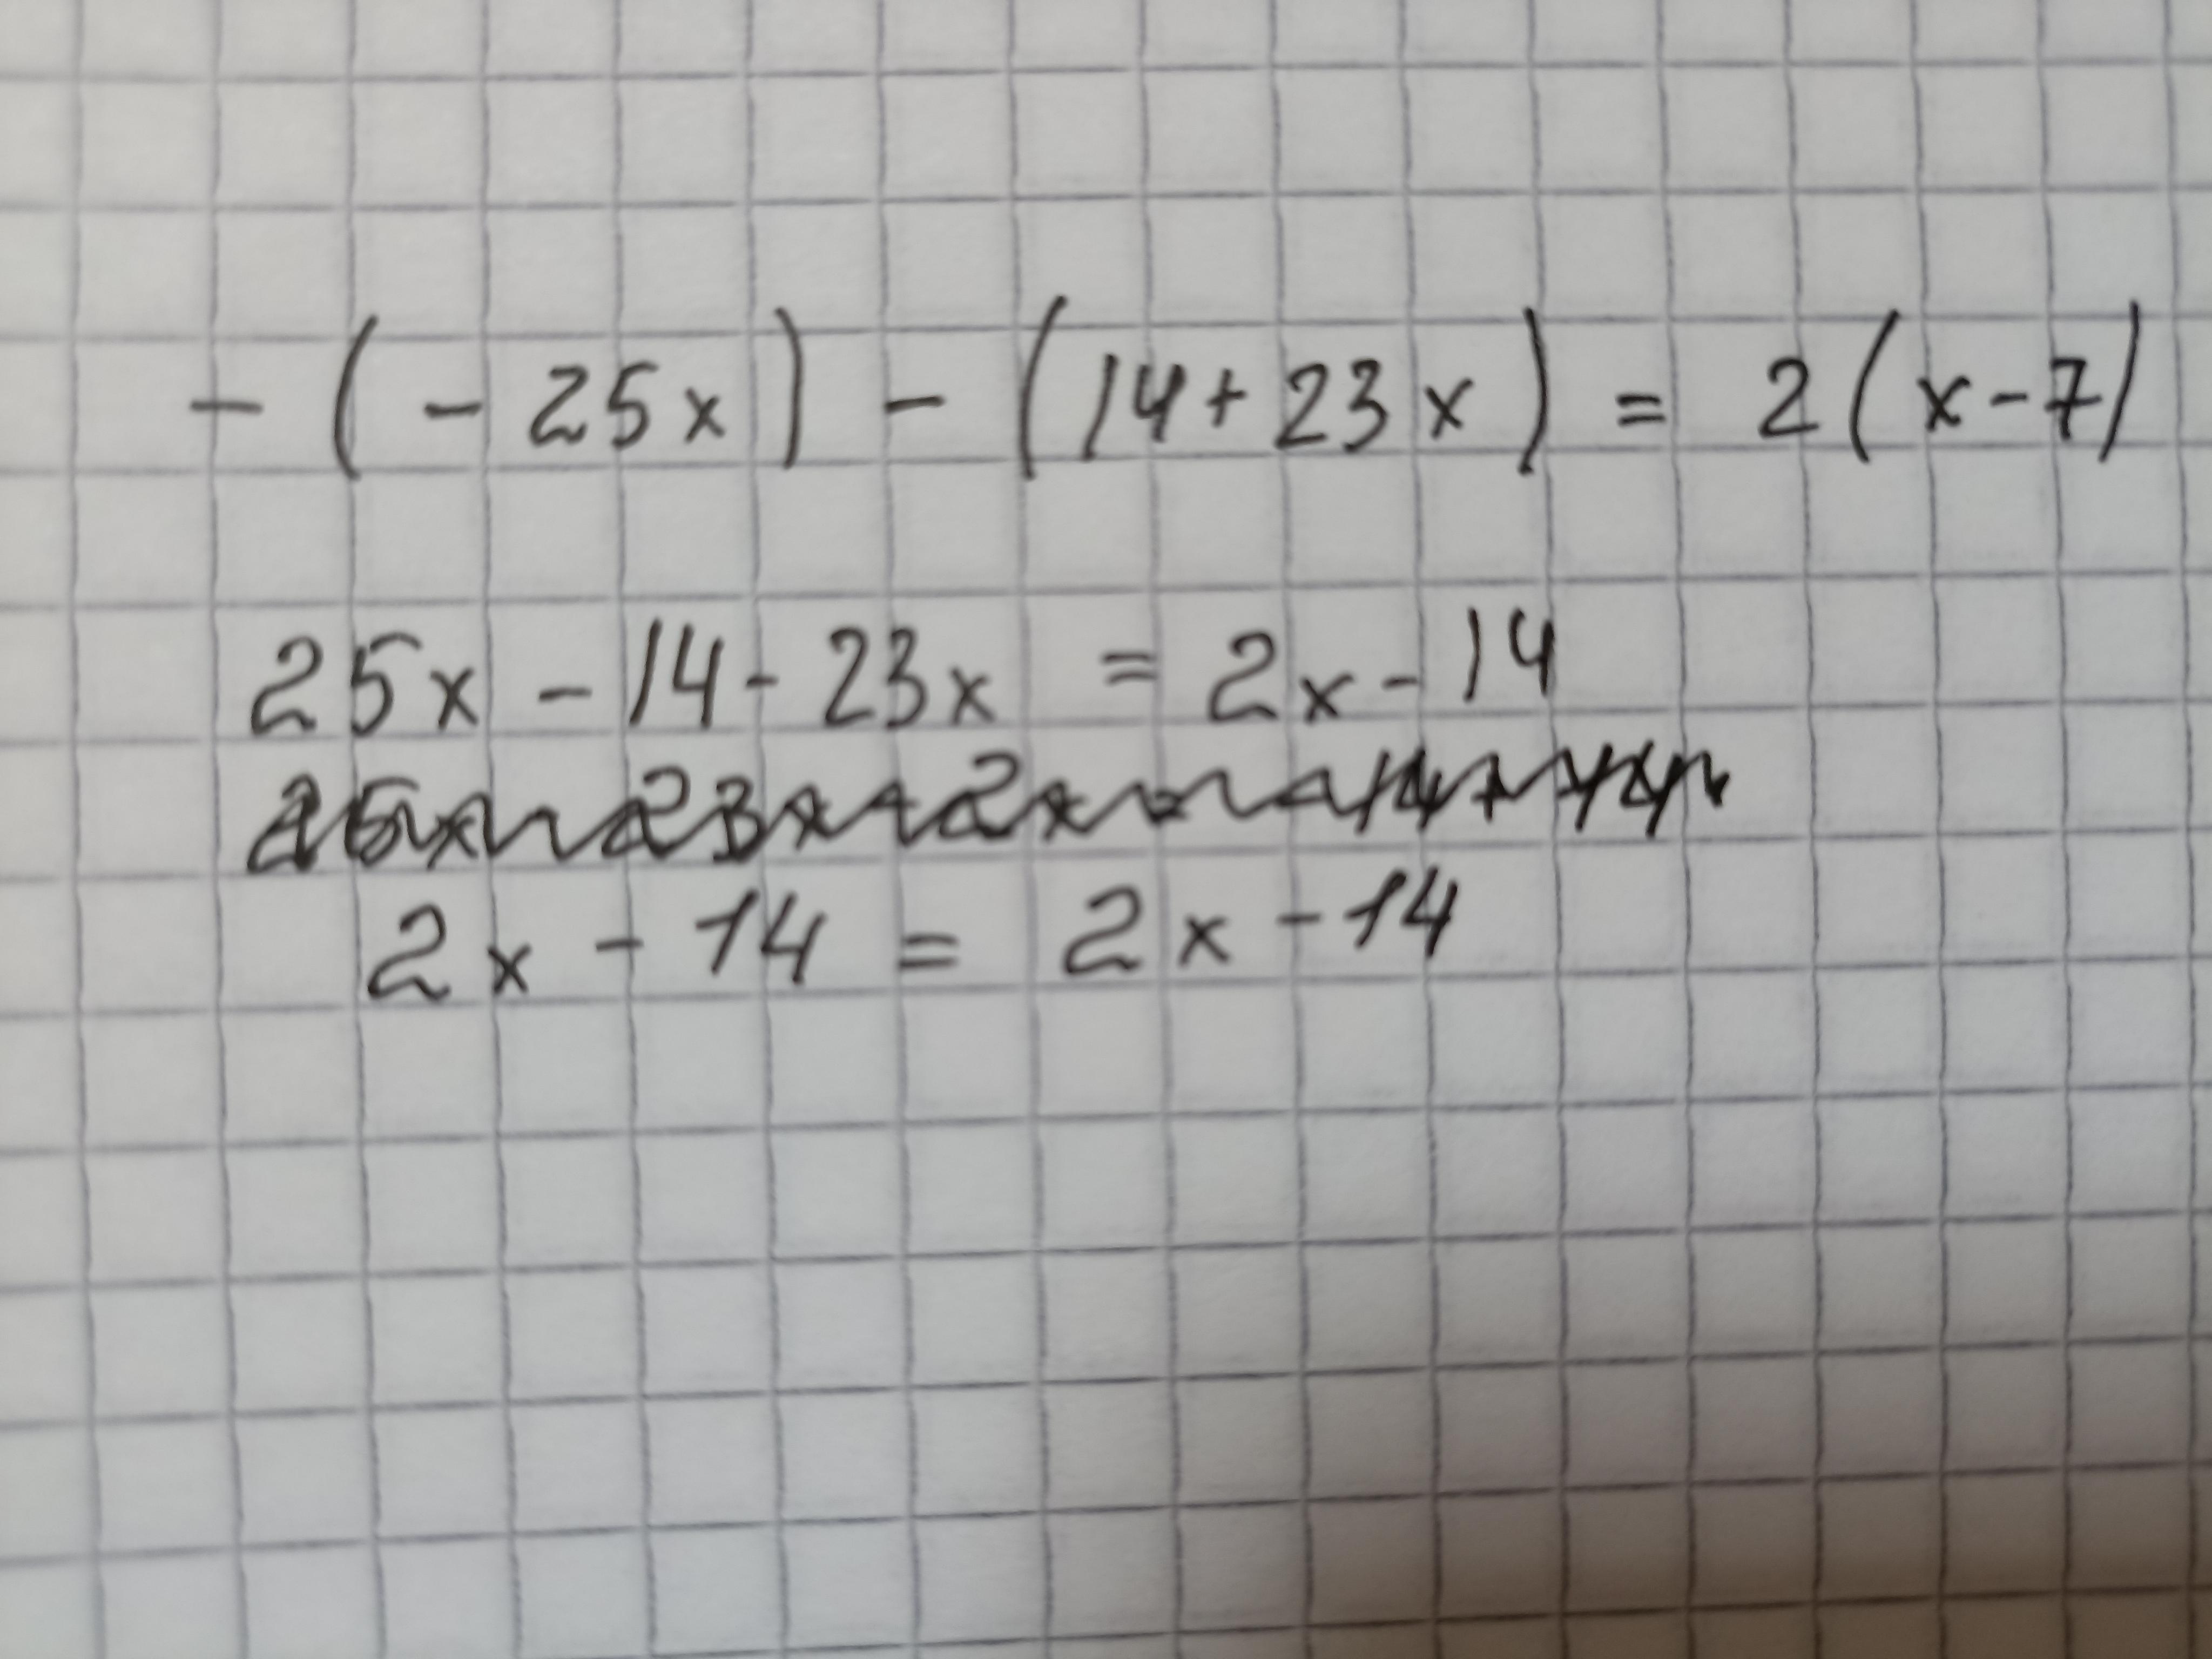 - ( - 25x ) - ( 14 + 23x ) = 2 ( x - 7 )
25x - 14 - 23x = 2x - 14
2x - 14 = 2x - 14